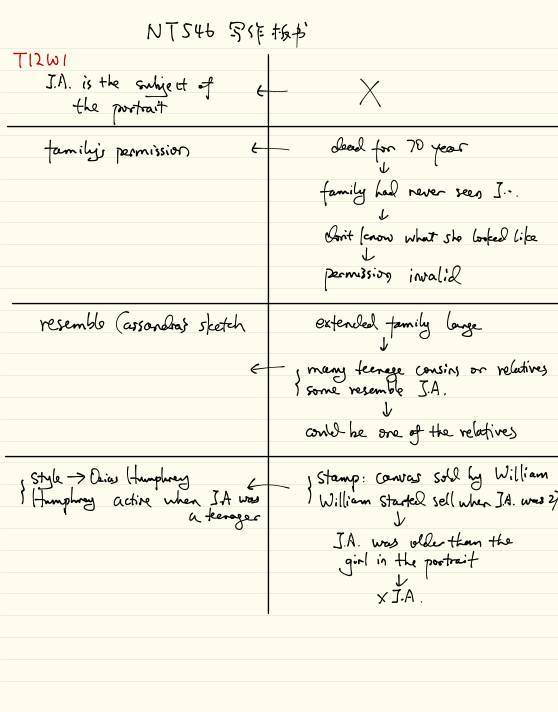 NTS46 写作板书
T12W1
J.A. is the subject of
the portrait
X
family's permission
dead for 70 year
↓
family had never seen J...
↓
don't know what she looked like
↓
permission invalid
resemble Cassandra's sketch
extended family large
↓
many teenage cousins or relatives
some resemble J.A.
↓
could be one of the relatives
style → Ozias Humphrey
Humphrey active when J.A was
a teenager
stamp: canvas sold by William
William started sell when J.A. was 27
↓
J.A. was older than the
girl in the portrait
↓
x J.A.